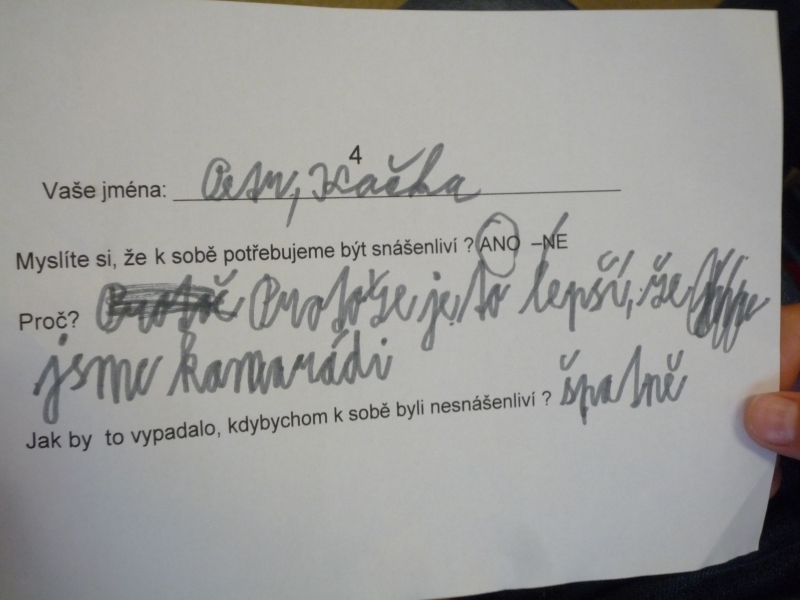 4
Vaše jména: Petr, Kačka
Myslíte si, že k sobě potřebujeme být snášenliví ? ANO –NE
Proč? Protože je to lepší, že
jsme kamarádi
Jak by to vypadalo, kdybychom k sobě byli nesnášenliví ? špatně